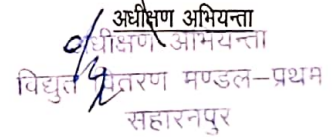 अधीक्षण अभियन्ता
अधीक्षण अभियन्ता
विद्युत वितरण मण्डल-प्रथम
सहारनपुर